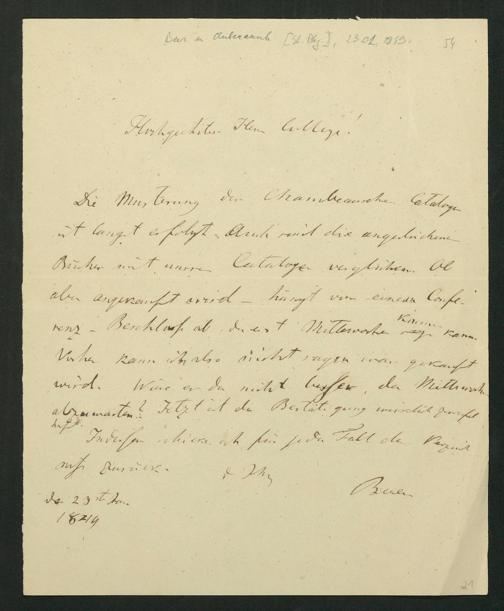 Baer an unbekannt [St. Pbg.], 23.01.1849. 54
Hochgeehrter Herr College!
Die Musterung der Cataloge
ist längst erfolgt. Auch sind die angestrichenen
Bücher mit unsern Catalogen verglichen. Ob
aber angekauft wird – hängt von einem Confe-
renz-Beschluss ab, der erst Mittewoche kommen kann.
Vorher kann ich also nicht sagen was gekauft
wird. Wäre es da nicht besser, den Mittwoch
abzuwarten? Jetzt ist die Bestätigung
Indessen schicke ich für jeden Fall das Verzeich-
niss zurück. d. Ihr
Baer
den 23st Jan.
1849
21